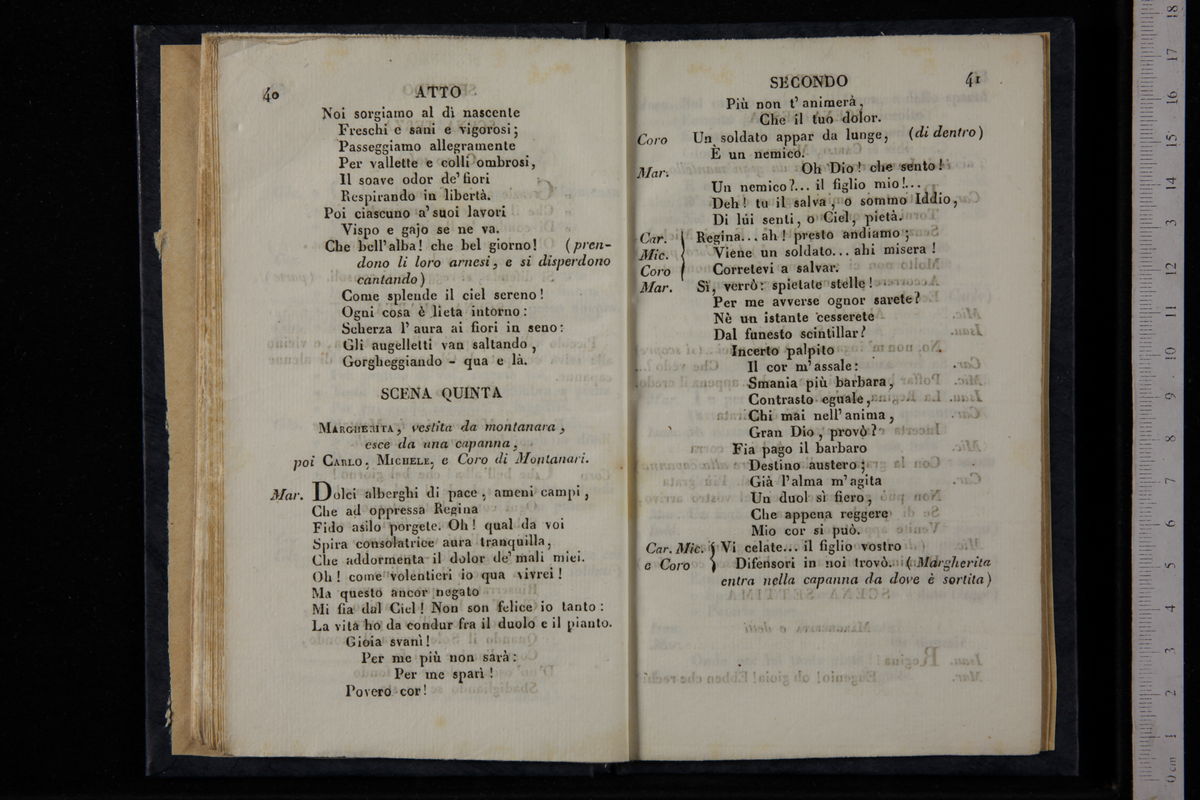 40
ATTO
Noi sorgiamo al dì nascente
Freschi e sani e vigorosi;
Passeggiamo allegramente
Per vallette e colli ombrosi,
Il soave odor de' fiori
Respirando in libertà.
Poi ciascuno a' suoi lavori
Vispo e gajo se ne va.
Che bell'alba! che bel giorno! (pren-
dono li loro arnesi, e si disperdono
cantando)
Come splende il ciel sereno!
Ogni cosa è lieta intorno:
Scherza l' aura ai fiori in seno:
Gli augelletti van saltando,
Gorgheggiando - qua e là.
SCENA QUINTA
MARGHERITA, vestita da montanara,
esce da una capanna,
poi CARLO, MICHELE, e Coro di Montanari.
Mar. Dolci alberghi di pace, ameni campi,
Che ad oppressa Regina
Fido asilo porgete. Oh! qual da voi
Spira consolatrice aura tranquilla,
Che addormenta il dolor de' mali miei.
Oh! come volentieri io qua vivrei!
Ma questo ancor negato
Mi fia dal Ciel! Non son felice io tanto:
La vita ho da condur fra il duolo e il pianto.
Gioia svanì!
Per me più non sarà:
Per me sparì!
Povero cor!
SECONDO
41
Più non t' animerà,
Che il tuo dolor.
Coro Un soldato appar da lunge, (di dentro)
È un nemico.
Mar. Oh Dio! che sento!
Un nemico?... il figlio mio!...
Deh! tu il salva, o sommo Iddio,
Di lui senti, o Ciel, pietà.
Car. { Regina... ah! presto andiamo;
Mic. Viene un soldato... ahi misera!
Coro Corretevi a salvar.
Mar. Sì, verrò: spietate stelle!
Per me avverse ognor sarete?
Nè un istante cesserete
Dal funesto scintillar?
Incerto palpito
Il cor m'assale:
Smania più barbara,
Contrasto eguale,
Chi mai nell' anima,
Gran Dio, provò?
Fia pago il barbaro
Destino austero;
Già l'alma m'agita
Un duol sì fiero,
Che appena reggere
Mio cor si può.
Car. Mic. { Vi celate... il figlio vostro
e Coro } Difensori in noi trovò. (Margherita
entra nella capanna da dove è sortita)